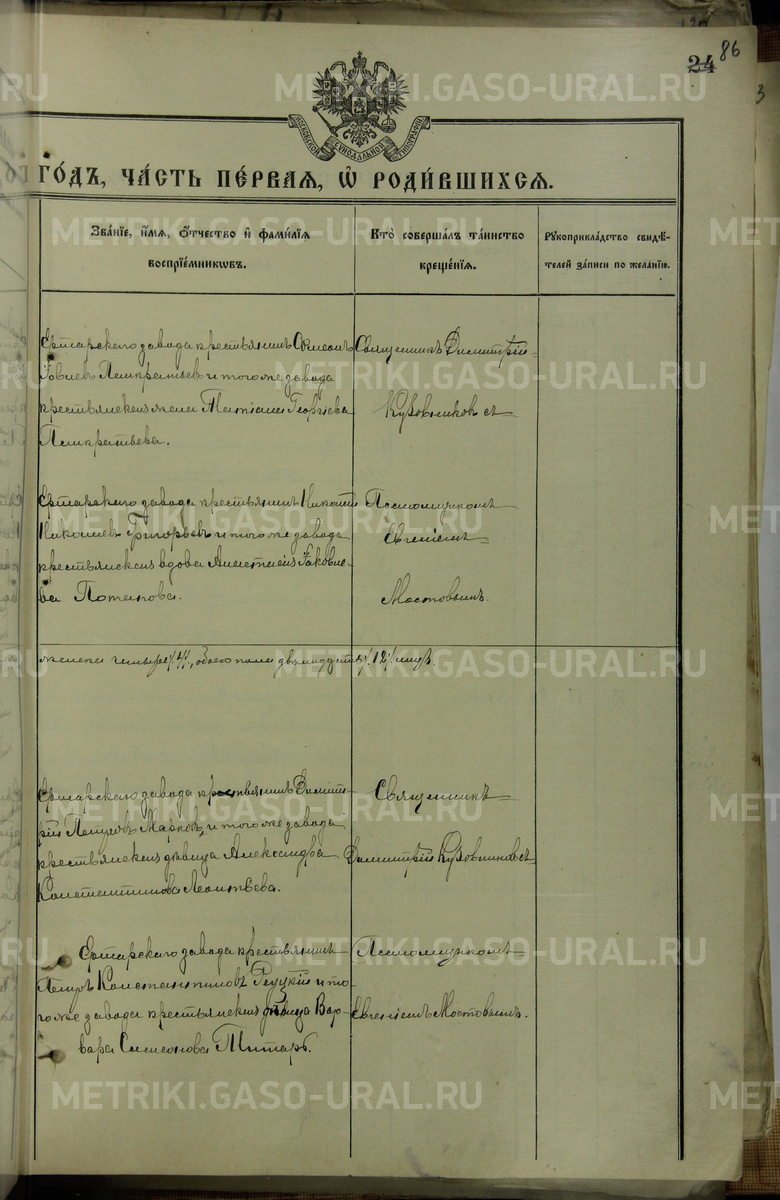 24 86
МОСКОВСКОЙ СѴНОДАЛЬНОЙ ТИПОГРАФІИ
ГО́ДЪ, ЧА́СТЬ ПЕ́РВАЯ, Ѡ҆ РОДИ́ВШИХСЯ.
Зва́нїе, и҆́мя, ѻ҆́тчество и҆ фами́лїя
воспрїе́мникѡвъ.
Кто̀ соверша́лъ та́инство
креще́нїя.
Рꙋкоприкла́дство свидѣ́-
телей за́писи по жела́нїю.
Ертарскаго завода крестьянинъ Симеонъ
Іовлевъ Панкратьевъ и того же завода
крестьянская жена Татіана Георгіева
Панкратьева.
Священникъ Димитрій
Кузовниковъ съ
Ертарскаго завода крестьянинъ
Николаевъ Григорьевъ и того же завода
крестьянская вдова Анастасія Іаковле-
ва Потапова.
Псаломщикомъ
Евгеніемъ
Мостовымъ.
женска четыре /4/, обоего пола двенадцать /12/ лицъ.
Ертарскаго завода крестьянинъ Димит-
рій Павловъ Марковъ и того же завода
крестьянская дѣвица Александра
Константинова Леонтьева.
Священникъ
Димитрій Кузовниковъ съ
Ертарскаго завода крестьянинъ
Петръ Константиновъ Реуцкій и то-
го же завода крестьянская дѣвица Вар-
вара Симеонова Титарь.
Псаломщикомъ
Евгеніемъ Мостовымъ.
METRIKI.GASO-URAL.RU